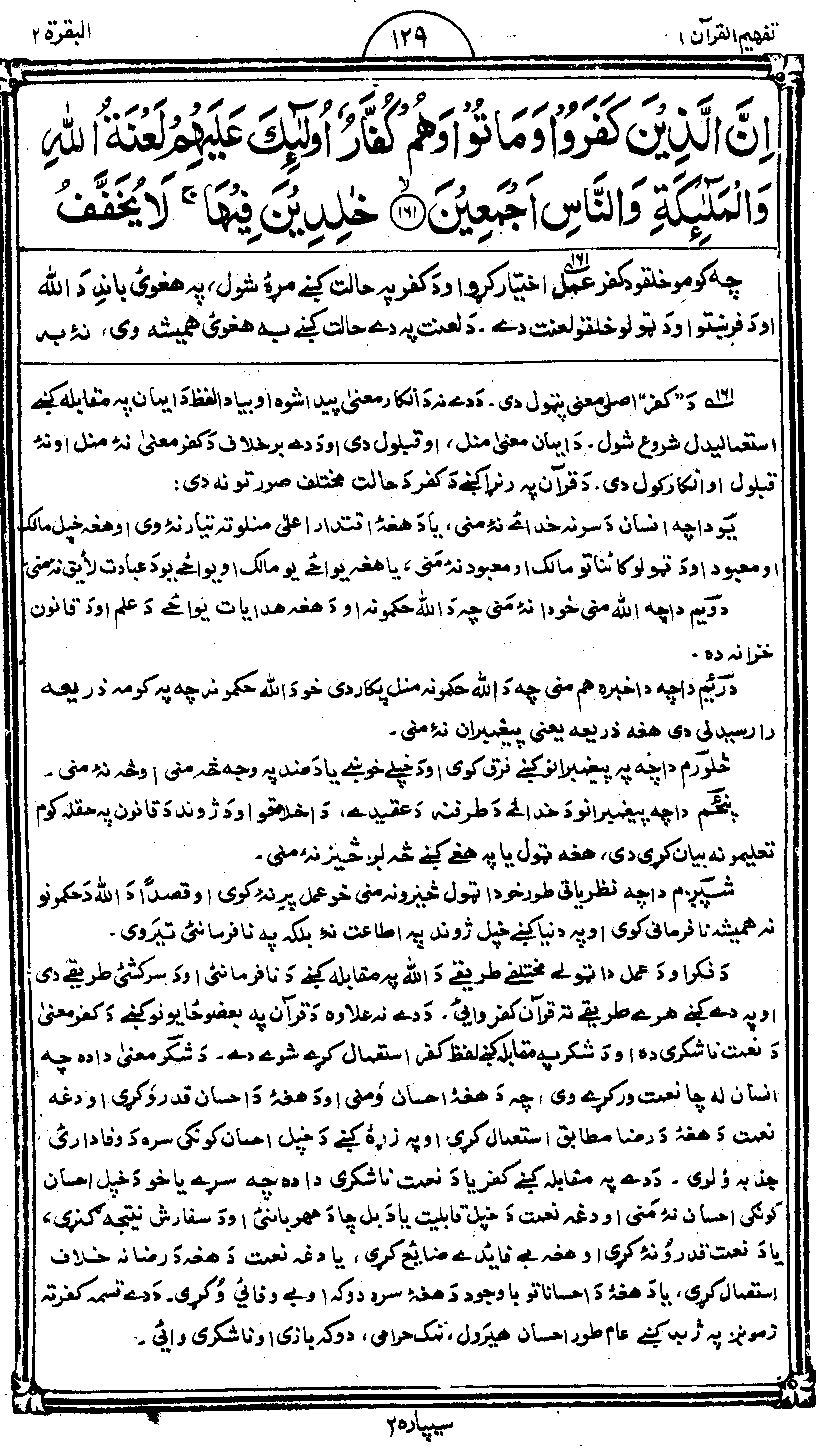 تفهيم القرآن ۱
۱۲۹
البقرة ۲
اِنَّ الَّذِيْنَ كَفَرُوْا وَمَا تُوْا وَهُمْ كُفَّارٌ اُولٰٓئِكَ عَلَيْهِمْ لَعْنَةُ اللّٰهِ
وَالْمَلٰٓئِكَةِ وَالنَّاسِ اَجْمَعِيْنَ ۱۶۱ خٰلِدِيْنَ فِيْهَا ۚ لَا يُخَفَّفُ
چه کومو خلقو د کفر عمل ۱۶۱ اختيار کړو او د کفر په حالت کښے مړۀ شول، په هغوئ باندِ دَ الله
او دَ فرښتو او د ټولو خلقو لعنت دے ۔ دَ لعنت په دے حالت کښے به هغوئ هميشه وی، نۀ به
۱۶۱ دَ "کفر" اصلی معنیٰ پټول دی ۔ دَ دے نه دَ انکار معنیٰ پيدا شوه او بيا دا لفظ دَ ايمان په مقابله کښے
استعماليدل شروع شول ۔ دَ ايمان معنیٰ منل، او قبلول دی او دَ دے برخلاف دَ کفر معنیٰ نۀ منل او نۀ
قبلول او انکار کول دی ۔ دَ قرآن په رنړا کښے دَ کفر دَ حالت مختلف صورتونه دی :
يَو دا چه انسان دَ سره خدائے نۀ منی، يا دَ هغۀ اقتدار اعلیٰ منلو ته تيار نۀ وی او هغه خپل مالک
او معبود او دَ ټولو کائناتو مالک او معبود نۀ مَنی، يا هغه يواځے يو مالک او يواځے يو دَ عبادت لائق نۀ منی
دوَيم دا چه الله منی خو دا نۀ مَنی چه دَ الله حکمونه او دَ هغه هدايات يواځے دَ علم او دَ قانون
خزانه ده ۔
درَئيم دا چه دا خبره هم منی چه دَ الله حکمونه منل پکار دی خو دَ الله حکمونه چه په کومه ذريعه
را رسيدلی دی هغه ذريعه يعنی پيغمبران نۀ منی ۔
څلورم دا چه په پيغمبرانو کښے فرق کوی او دَ خپلے خوښے يا دَ ضد په وجه څه منی او څه نۀ منی ۔
پنځم دا چه پيغمبرانو دَ خدائے دَ طرفنه دَ عقيدے، دَ اخلاقو او دَ ژوند دَ قانون په حقله کوم
تعليمونه بيان کړی دی، هغه ټول يا په هغے کښے څه لږ څيز نۀ منی ۔
شپږم دا چه نظرياتی طور خو دا ټول څيزونه منی خو عمل پرِ نۀ کوی او قصداً دَ الله دَ حکمونو
نه هميشه نافرمانی کوی او په دنيا کښے خپل ژوند په اطاعت نۀ بلکه په نافرمانئ تيروی ۔
دَ فکر او دَ عمل دا ټولے مختلفے طريقے دَ الله په مقابله کښے دَ نافرمانئ او دَ سرکشئ طريقے دی
او په دے کښے هرے طريقے ته قرآن کفر وائی ۔ دَ دے نه علاوه دَ قرآن په بعضو ځايونو کښے دَ کفر معنیٰ
دَ نعمت ناشکری ده او دَ شکر په مقابله کښے لفظ کفر استعمال کړے شوے دے ۔ دَ شکر معنیٰ دا ده چه
انسان له چا نعمت ورکړے وی، چه دَ هغۀ احسان وَمنی او دَ هغۀ دَ احسان قدر وُکړی او دغه
نعمت دَ هغۀ دَ رضا مطابق استعمال کړی او په زړۀ کښے دَ خپل احسان کونکی سره دَ وفادارئ
جذبه وُلری ۔ دَ دے په مقابله کښے کفر يا دَ نعمت ناشکری دا ده چه سړے يا خو دَ خپل احسان
کونکی احسان نۀ مَنی او دغه نعمت دَ خپل قابليت يا دَ بل چا دَ مهربانئ او دَ سفارش نتيجه ګنړی،
يا دَ نعمت قدر وُنۀ کړی او هغه بے فائدے ضائع کړی، يا دغه نعمت دَ هغه دَ رضا نه خلاف
استعمال کړی، يا دَ هغۀ دَ احساناتو باوجود دَ هغۀ سره دوکه او بے وفائی وُکړی ۔ دَ دے قسمه کفر ته
زمونږ په ژبه کښے عام طور احسان هيرول، نمک حرامی، دوکه بازی او ناشکری وائی ۔
سيپاره ۲